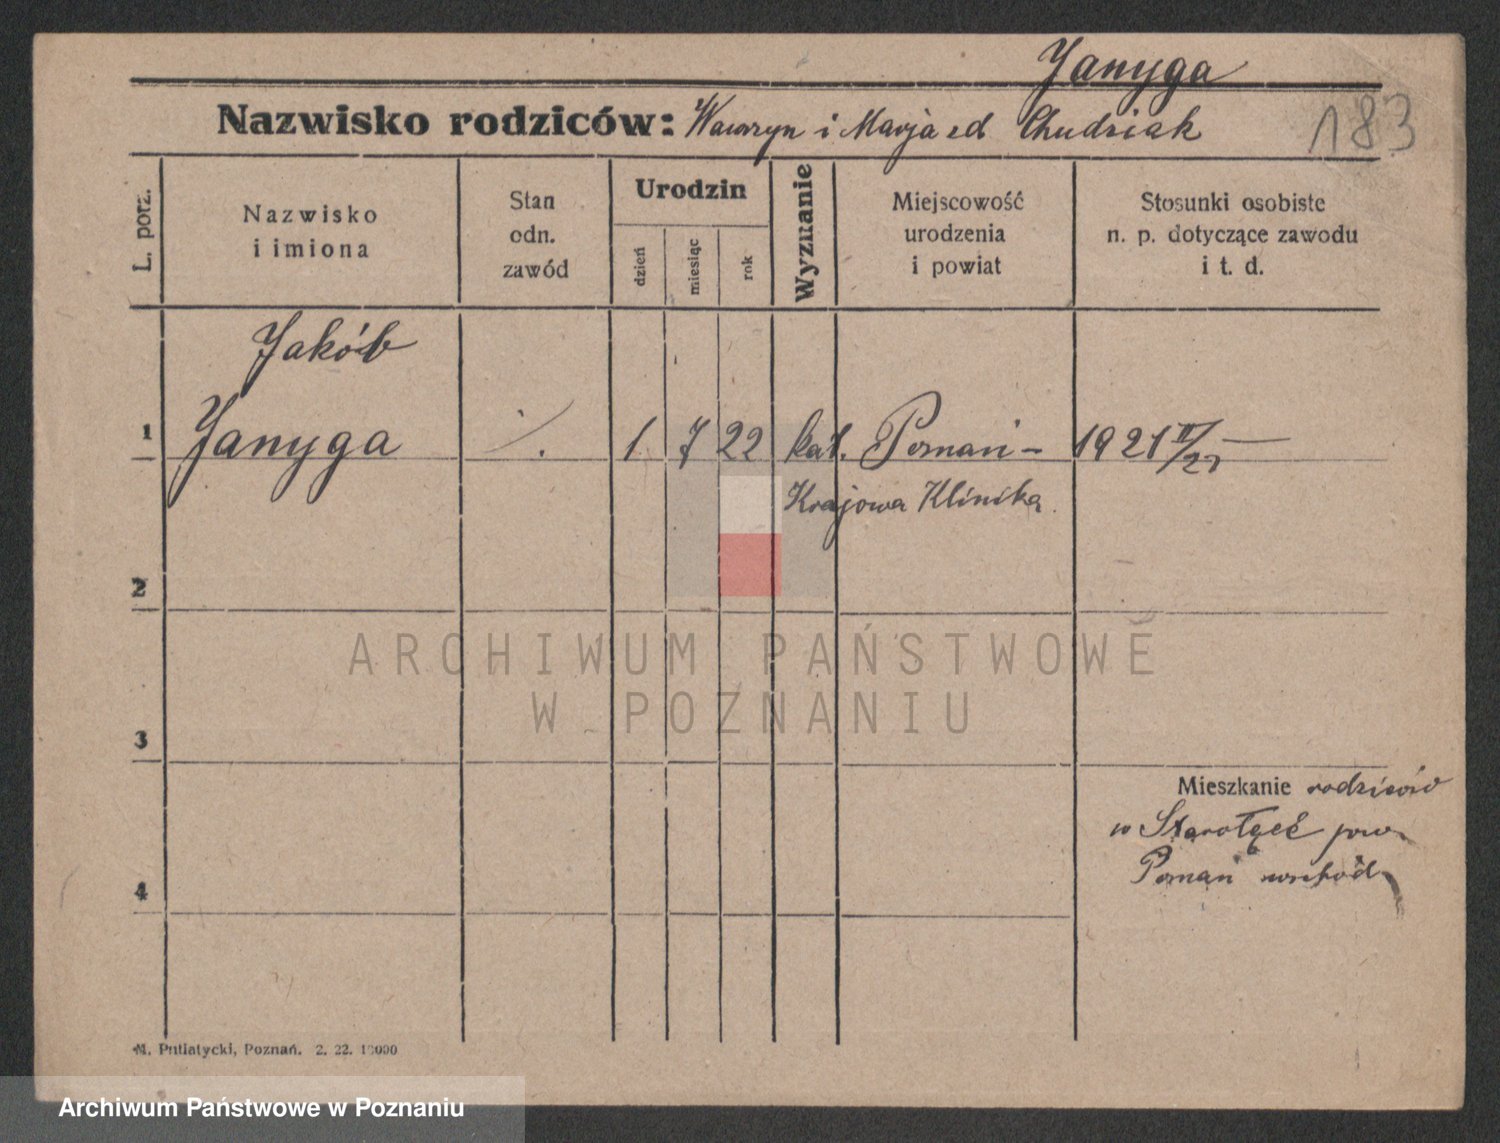 Janyga
Nazwisko rodziców: Wawrzyn i Marja zd Chudziak
183
L. porz.
Nazwisko
i imiona
Stan
odn.
zawód
Urodzin
dzień
miesiąc
rok
Wyznanie
Miejscowość
urodzenia
i powiat
Stosunki osobiste
n. p. dotyczące zawodu
i t. d.
Jakób
1 Janyga ·/. 1 7 22 kat. Poznań – 1921 II/22 —
Krajowa Klinika.
2
ARCHIWUM PAŃSTWOWE
W POZNANIU
3
Mieszkanie rodziców
w Starołęce pow.
Poznań wschód
4
M. Putiatycki, Poznań. 2. 22. 10000
Archiwum Państwowe w Poznaniu